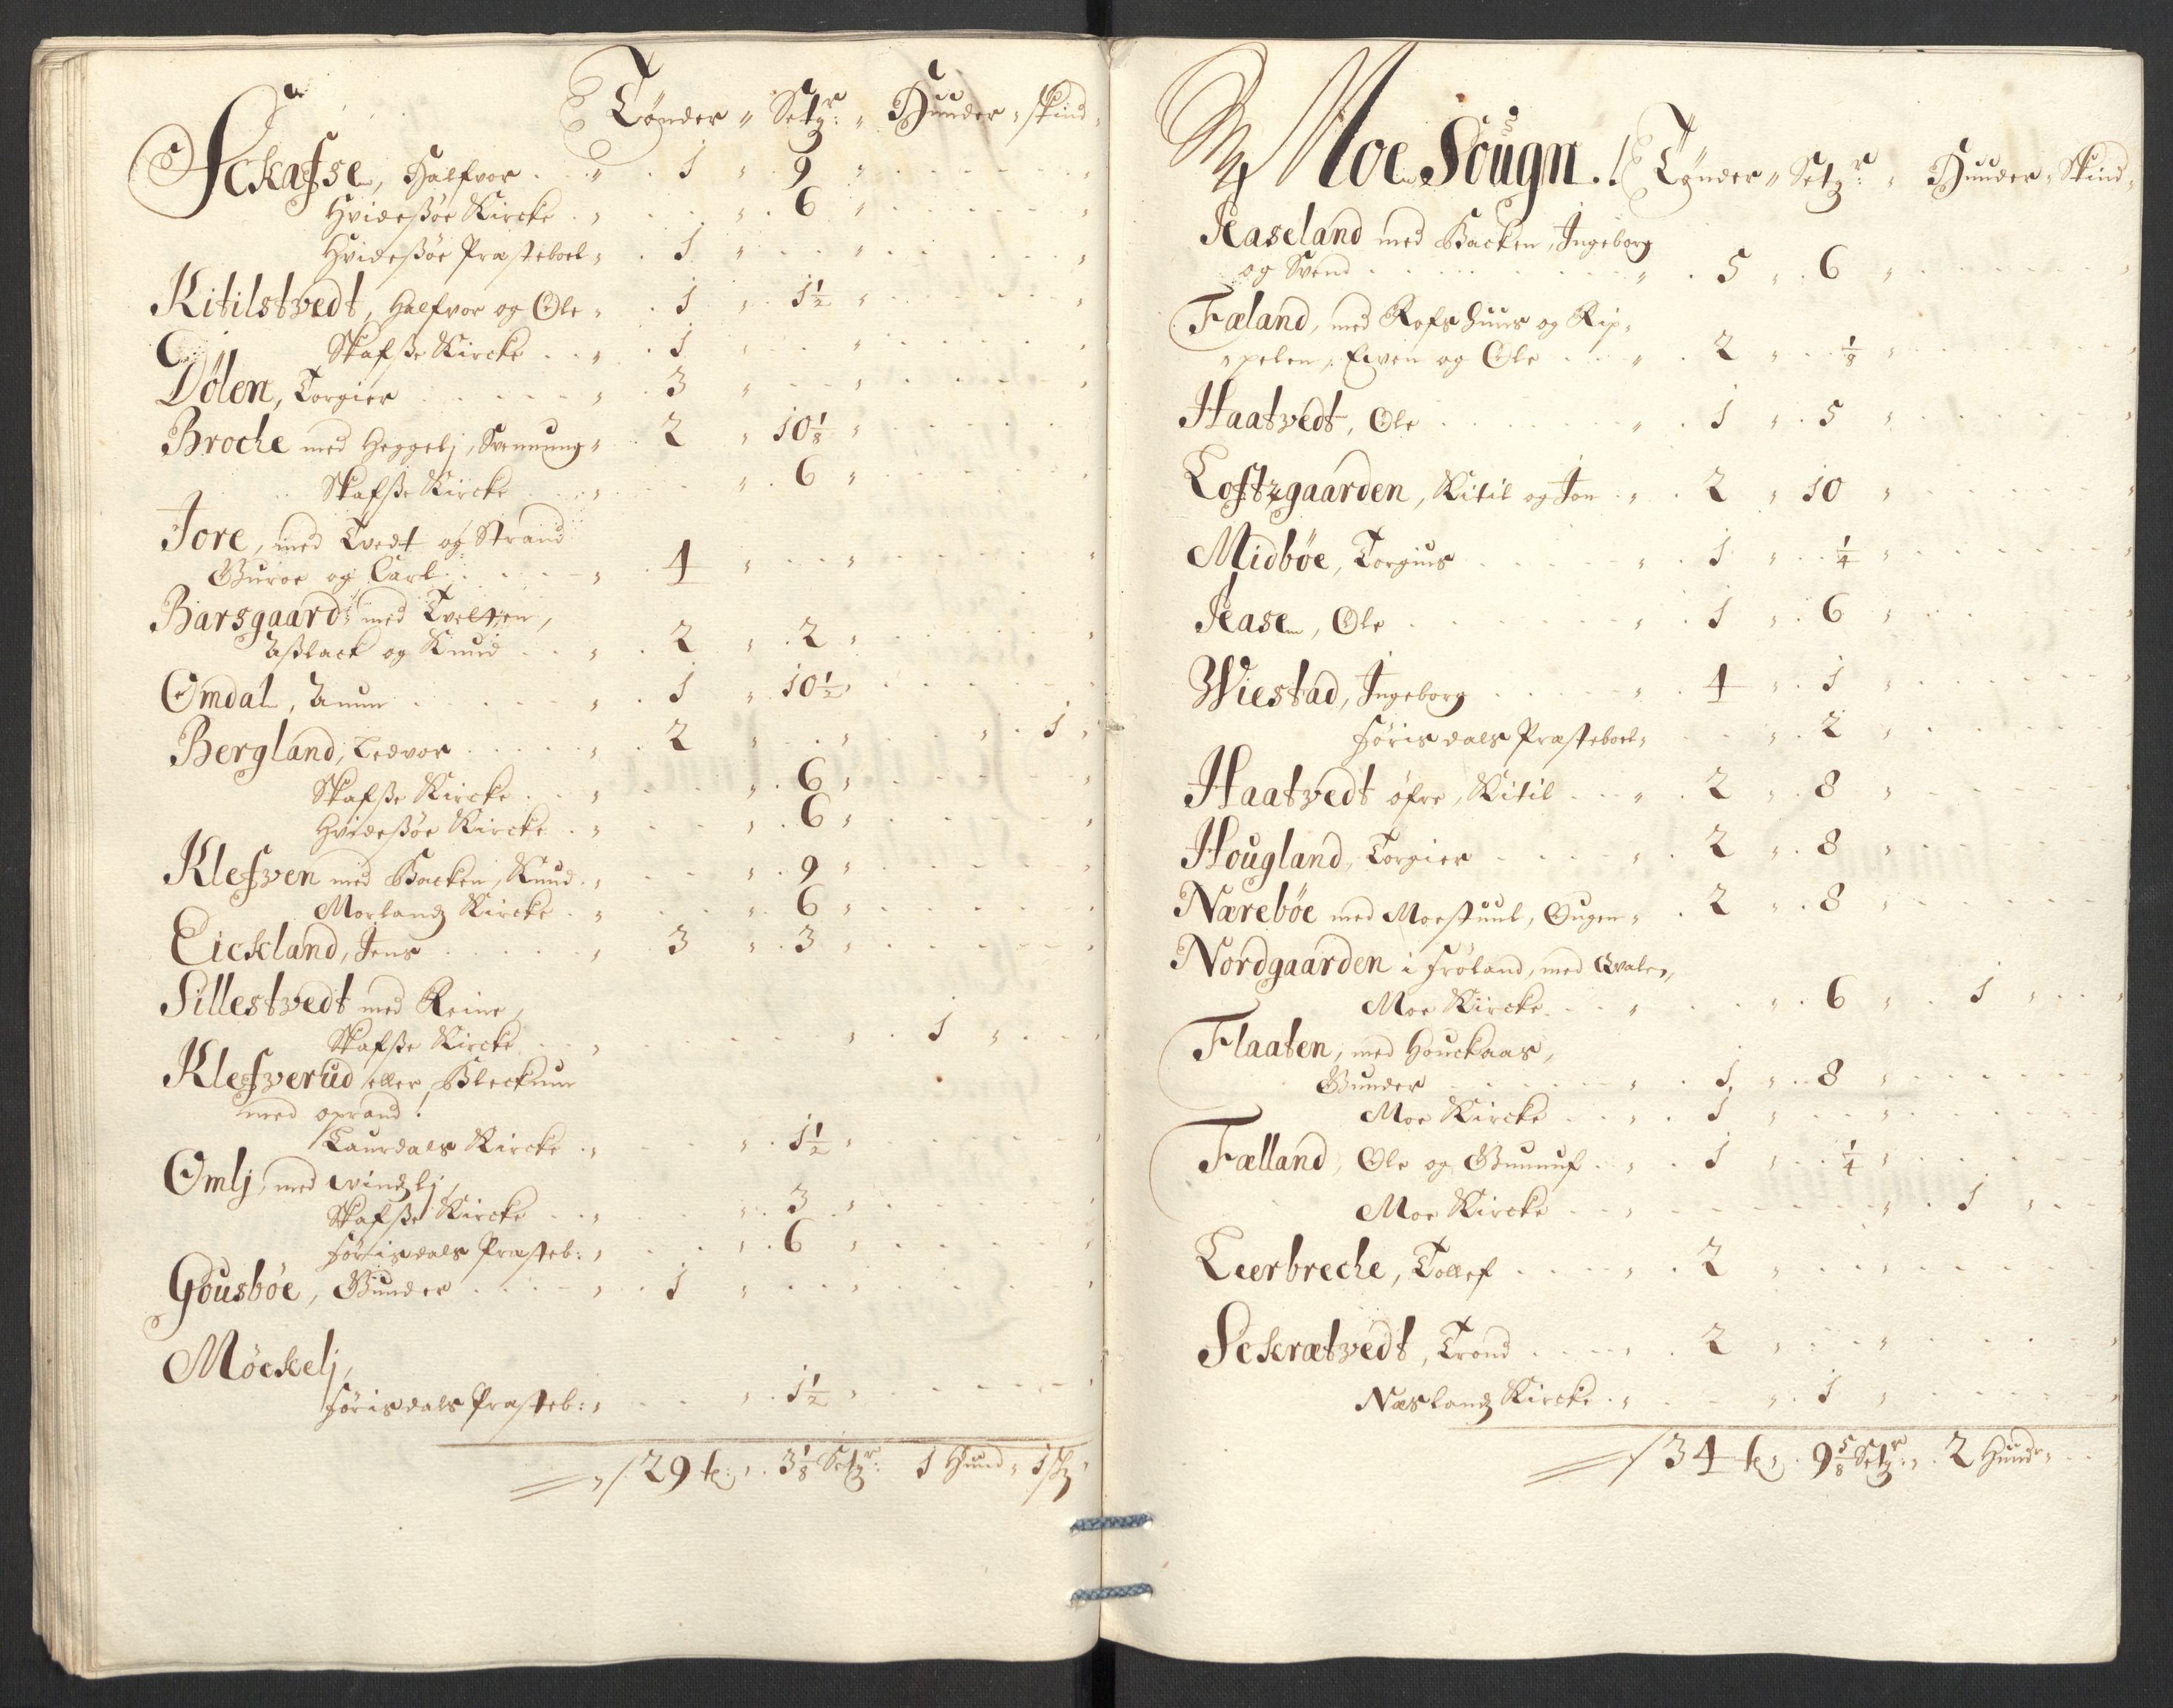 Tønder „ Setzr: „ Huuder „ skind „
Sckafse, Halfvor . . „ . 1 „ 9 „
Hvidesøe Kircke . „ . . „ . 6 „
Hvidesøe Præsteboel „ . 1 „ . . „
Kitilstvedt, Halfvor og Ole „ . 1 „ . 1½ „
Skafsse Kircke . . „ . 1 „ . . „
Dølen, Torgier . . . „ . 3 „ . . „
Broche med Heggelj, Svennung „ . 2 „ 10⅛ „
Skafsse Kircke . . „ . . „ . 6 „
Jore, med Tvedt og Strand
Guroe og Carl . . . „ . 4 „ . . „
Barsgaard med Tveltten,
Aslack og Knud . . „ . 2 „ . 2 „
Omdal, Anun . . . „ . 1 „ . 10½ „
Bergland, Ledvor . . . „ . 2 „ . . „ . . „ . 1 „
Skafsse Kircke . . „ . . „ . 6 „
Hvidesøe Kircke . „ . . „ . 6 „
Klefven med Backen, Knud . „ . . „ . 9 „
Morlandz Kircke . „ . . „ . 6 „
Eickland, Jens . . . „ . 3 „ . 3 „
Sillestvedt med Reine,
Skafsse Kircke . . „ . . . . „ . 1 „ . . „
Klefverud eller Blecknun
med oprand.
Laurdals Kircke . „ . . „ . 1½ „
Omlj, med vindzlj,
Skafsse Kircke . . „ . . „ . 3 „
Førisdals Præsteb: „ . . „ . 6 „
Gousbøe, Gunder . . . „ . 1 „ . . „
Møckelj,
Førisdals Præsteb: „ . . „ . 1½ „
29 t: „ . 3⅛ Setzr: 1 Hund „ 1 sk „
Moe Sougn. Tønder „ Setzr: „ Huuder „ Skind „
Raseland med Backen, Ingeborg
og Svend . . . . „ . 5 „ . 6 „
Fæland, med Rofs Huus og Rip„
„pelen, Even og Ole . . „ . 2 „ . . ⅛ „
Haatvedt, Ole . . . „ . 1 „ . 5 „
Loftzgaarden, Kitil og Jon . „ . 2 „ 10 „
Midbøe, Torgius . . . „ . 1 „ . . ¼ „
Rase, Ole . . . „ . 1 „ . 6 „
Wiestad, Ingeborg . . . „ . 4 „ . 1 „
Førisdals Præsteboel „ . . „ . 2 „
Haatvedt øfre, Kitil . . „ . 2 „ . 8 „
Hougland, Torgier . . . „ . 2 „ . 8 „
Nærebøe med Moestuul, Ougen „ . 2 „ . 8 „
Nordgaarden i Frøland, med Qvalen,
Moe Kircke . . „ . . „ . 6 „ . 1 „ . . „
Flaaten, med Houckaas,
Gunder . . . „ . 1 „ . . 8 „
Moe Kircke . . „ . 1 „ . . „
Fælland, Ole og Gunnuf . „ . 1 „ . . ¼ „
Moe Kircke . . „ . . . . „ . 1 „ . .
Leerbreche, Tollef . . . „ . 2 „ . . „
Sckrætvedt, Trond . . . „ . 2 „ . . „
Næslandz Kircke . „ . . „ . 1 „
34 t: „ . 9⅝ Setzr: „ . 2 Hund „ . .